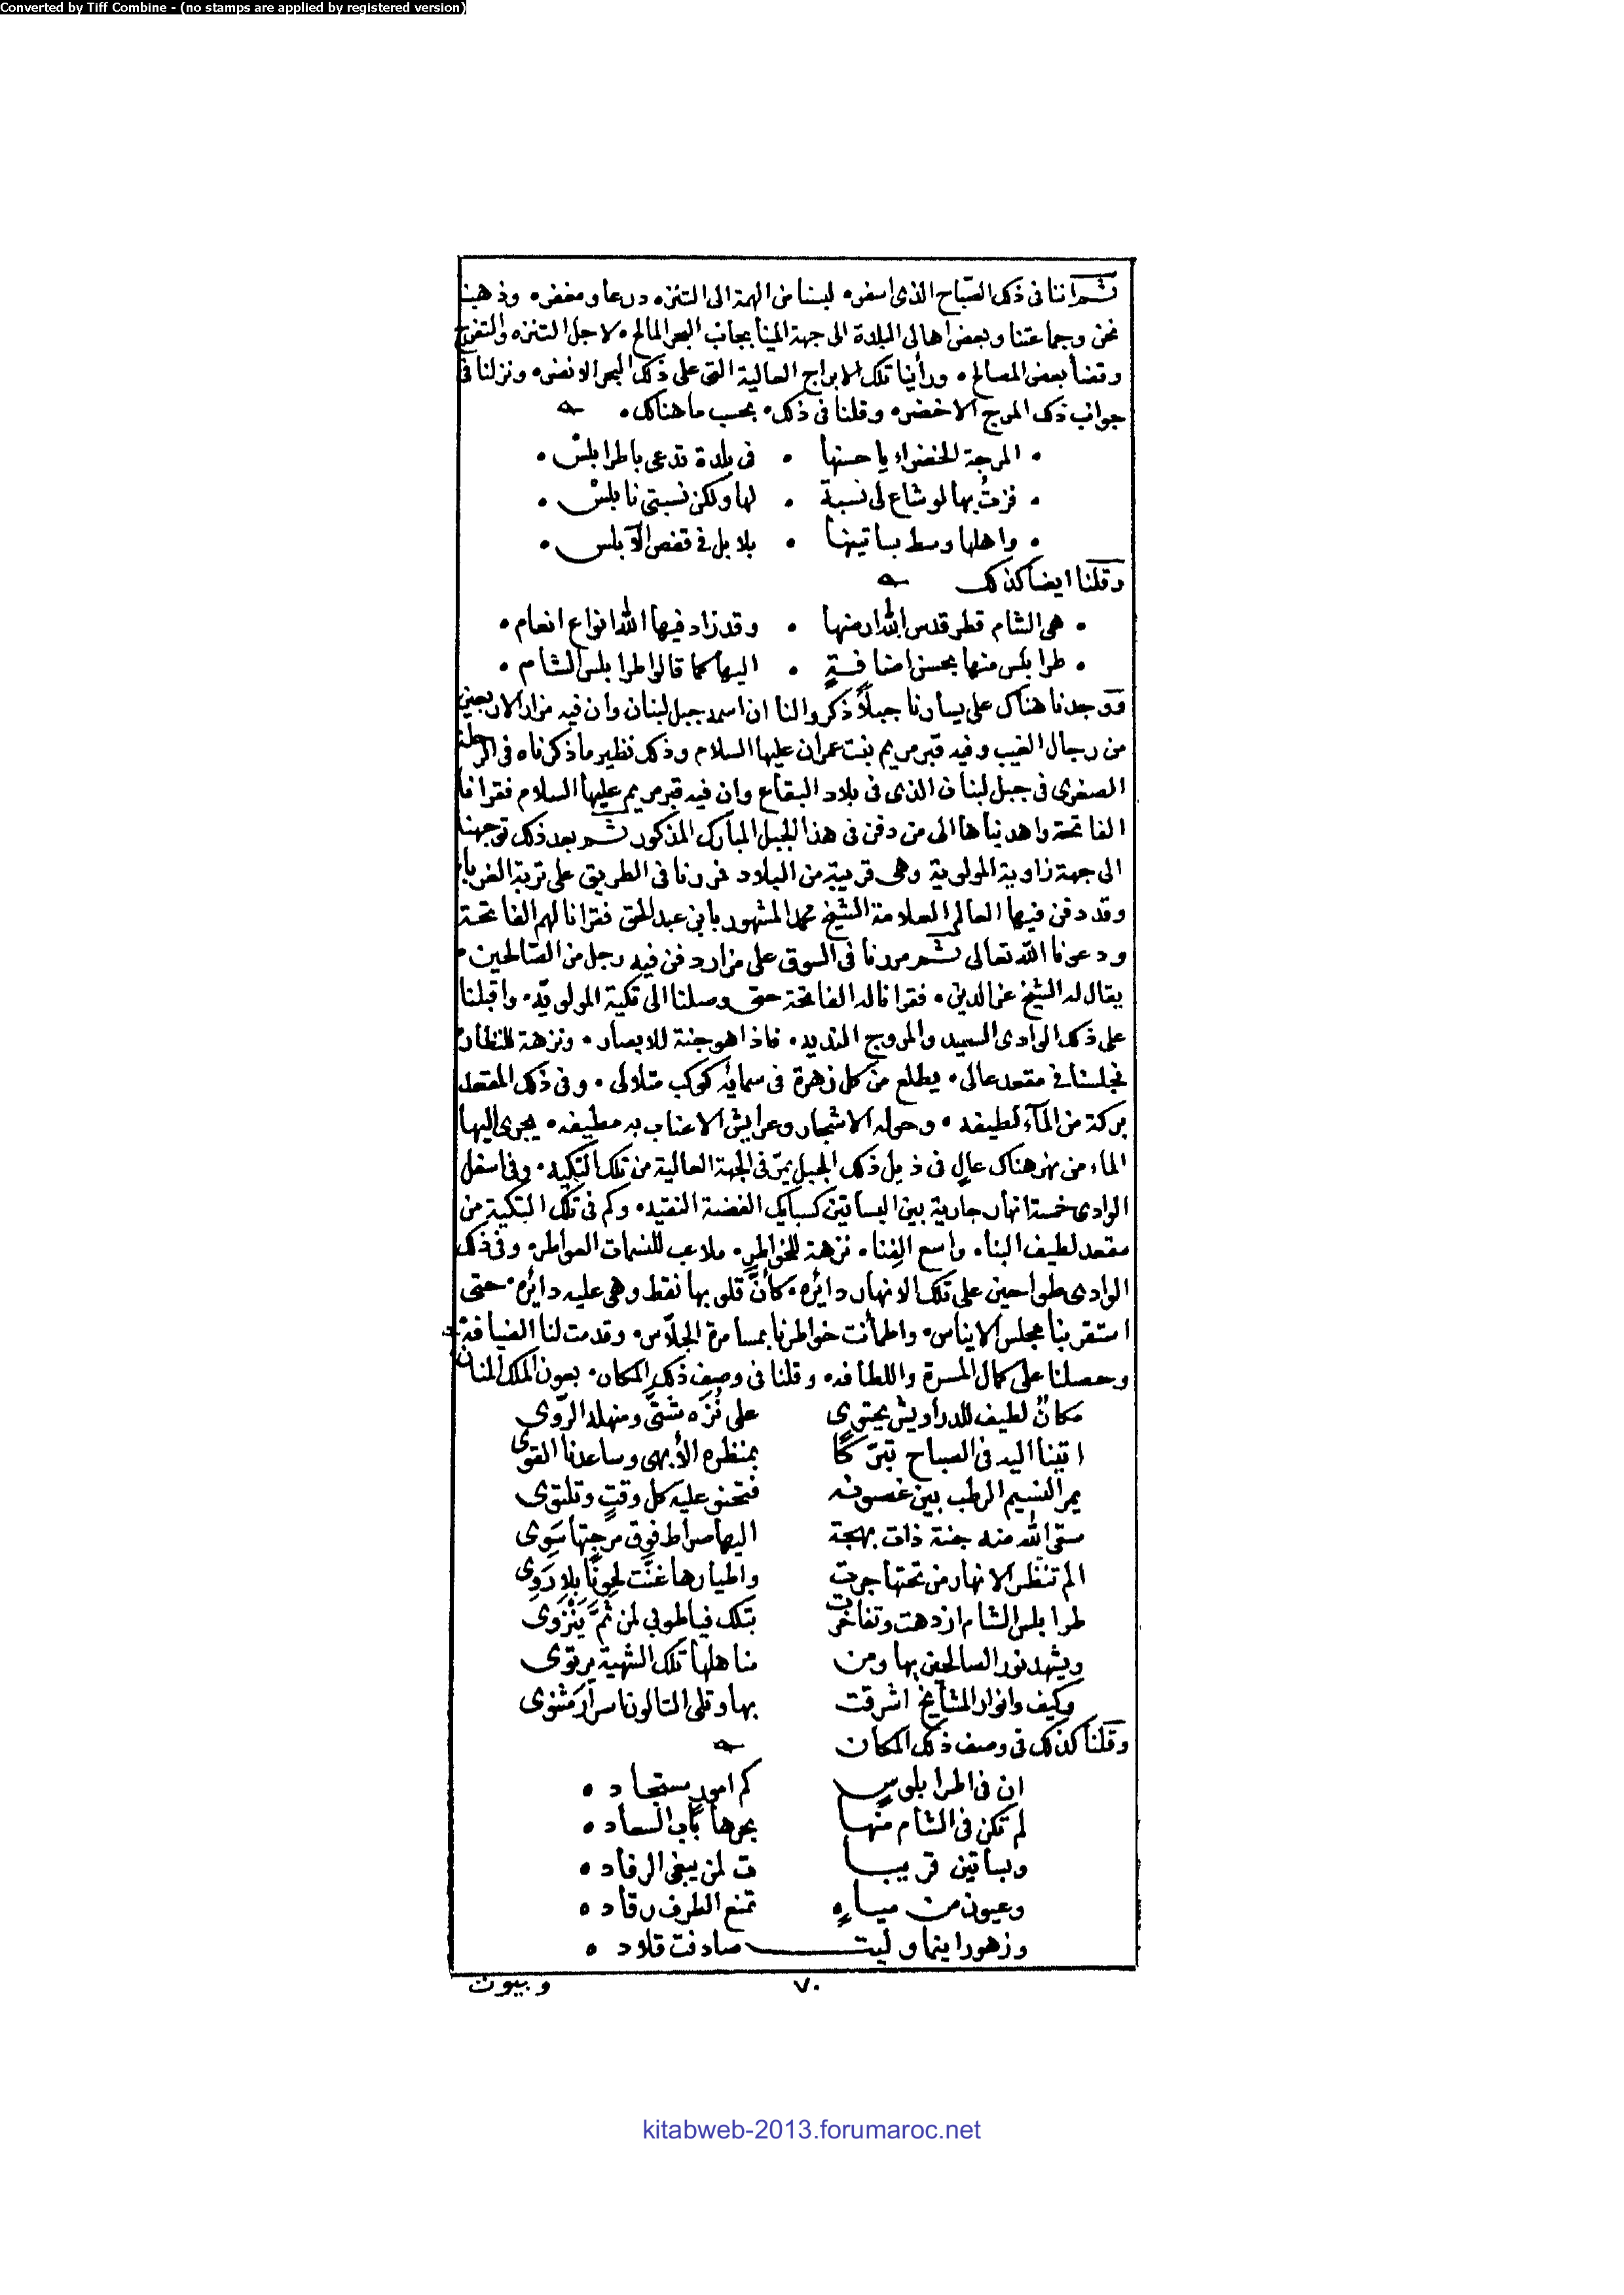 Converted by Tiff Combine - (no stamps are applied by registered version)
ثم اننا فى ذلك الصباح الذى اسفر ٠ لبسنا من الهمة الى التنزه درعا ومغفر ٠ وذهبنا
نحن وجماعتنا وبعض اهالى البلدة الى جهة المينا بجانب البحر المالح ٠ لاجل التنزه والتفرج
وقضأ بعض المصالح ٠ ورأينا تلك الابراج العالية التى على ذلك البحر الانضر ٠ ونزلنا فى
جوانب ذلك المرج الاخضر ٠ وقلنا فى ذلك ٠ بحسب ما هنالك ٠
٠ المرجة الخضراء يا حسنها ٠ فى بلدة تدعى باطرابلس ٠
٠ نزهت بها لو شاع لى نسبة ٠ لها ولكن نسبتى نابلس ٠
٠ واهلها وسط بساتينها ٠ بلابل فى قفص الآبلس ٠
وقلنا ايضا كذلك
٠ هى الشام قطر قدس الله ارضها ٠ وقد زاد فيها الله انواع انعام ٠
٠ طرابلس منها بحسن اضافةٍ ٠ اليها كما قالوا طرابلس الشام ٠
ووجدنا هناك على يسارنا جبلاً ذكروا لنا ان اسمه جبل لبنان وان فيه مزار الاربعين
من رجال الغيب وفيه قبر مريم بنت عمران عليها السلام وذلك نظير ما ذكرناه فى الرحلة
الصغرى فى جبل لبنان الذى فى بلاد البقاع وان فيه قبر مريم عليها السلام فقرانا
الفاتحة واهديناها الى من دفن فى هذا الجبل المبارك المذكور ثم بعد ذلك توجهنا
الى جهة زاوية المولوية وهى قريبة من البلاد فمررنا فى الطريق على تربة الغربا
وقد دفن فيها العالم العلامة الشيخ محمد المشهور بابن عبد الحق فقرانا لهم الفاتحة
ودعونا الله تعالى ثم مررنا فى السوق على مزار دفن فيه رجل من الصالحين ٠
يقال له الشيخ عز الدين ٠ فقرانا له الفاتحة حتى وصلنا الى تكية المولويّه ٠ واقبلنا
على ذلك الوادى السعيد والمروج المديد ٠ فاذا هو جنة للابصار ٠ ونزهة للنظار
فجلسنا فى مقعد عالى ٠ يطلع من كل زهرة فى سمايه كوكب متلالى ٠ وفى ذلك المقعد
بركة من المآء لطيفه ٠ وحوله الاشجار وعرايش الاعناب به مطيفه ٠ يجرى اليها
الماء من نهر هناك عالٍ فى ذيل ذلك الجبل يمرّ فى الجهة العالية من تلك التكيه ٠ وفى اسفل
الوادى خمسة انهار جارية بين البساتين كسبايك الفضة النقيه ٠ وكم فى تلك التكية من
مقعد لطيف البنا ٠ واسع الفنا ٠ نزهة للخواطر ٠ ملاعب للنسمات العواطر ٠ وفى ذلك
الوادى طواحين على تلك الانهار دائره ٠ كأنّ قلوبها نقط وهى عليه دائره ٠ حتى
استقر بنا مجلس الايناس ٠ واطمأنت خواطرنا بمسامرة الجلاّس ٠ وقدمت لنا الضيافة
وحصلنا على كمال المسرة واللطافه ٠ وقلنا فى وصف ذلك المكان ٠ بعون الملك المنان
مكانٌ لطيف للدراويش يحتوى على نُزَه شتّى ومنهله الرّوى
اتينا اليه فى الصباح تبرّكًا بمنظره الأبهى وساعدنا القوى
يمر النسيم الرطب بين غصونه فتحنو عليه كل وقتٍ وتلتوى
سقى الله منه جنة ذات بهجة اليها صراط فوق مرجتها سَوى
الم تنظر الانهار من تحتها جرت واطيارها غنّت لحونًا بلا رَوِى
طرابلس الشام ازدهت وتفاخرت بتلك فيا طوبى لمن ثَمَّ يَنْزَوى
ويشهد نور الصالحين بها ومن مناهلها تلك الشهية يرتوى
وكيف وانوار المشايخ اشرقت بها وتلى التالون اسرار مثنوى
وقلنا كذلك فى وصف ذلك المكان
ان فى اطرابلوسٍ كم امورٍ مستجاد ٥
لم تكن فى الشام منها بحرها باب السعاد ٥
وبساتين قريبا ت لمن يبغى الرفاد ٥
وعيون من مياهٍ تمنع الطرف رقاد ٥
وزهور اينما وليت صادفت قلاد ٥
٧٠
وبيوت
kitabweb-2013.forumaroc.net